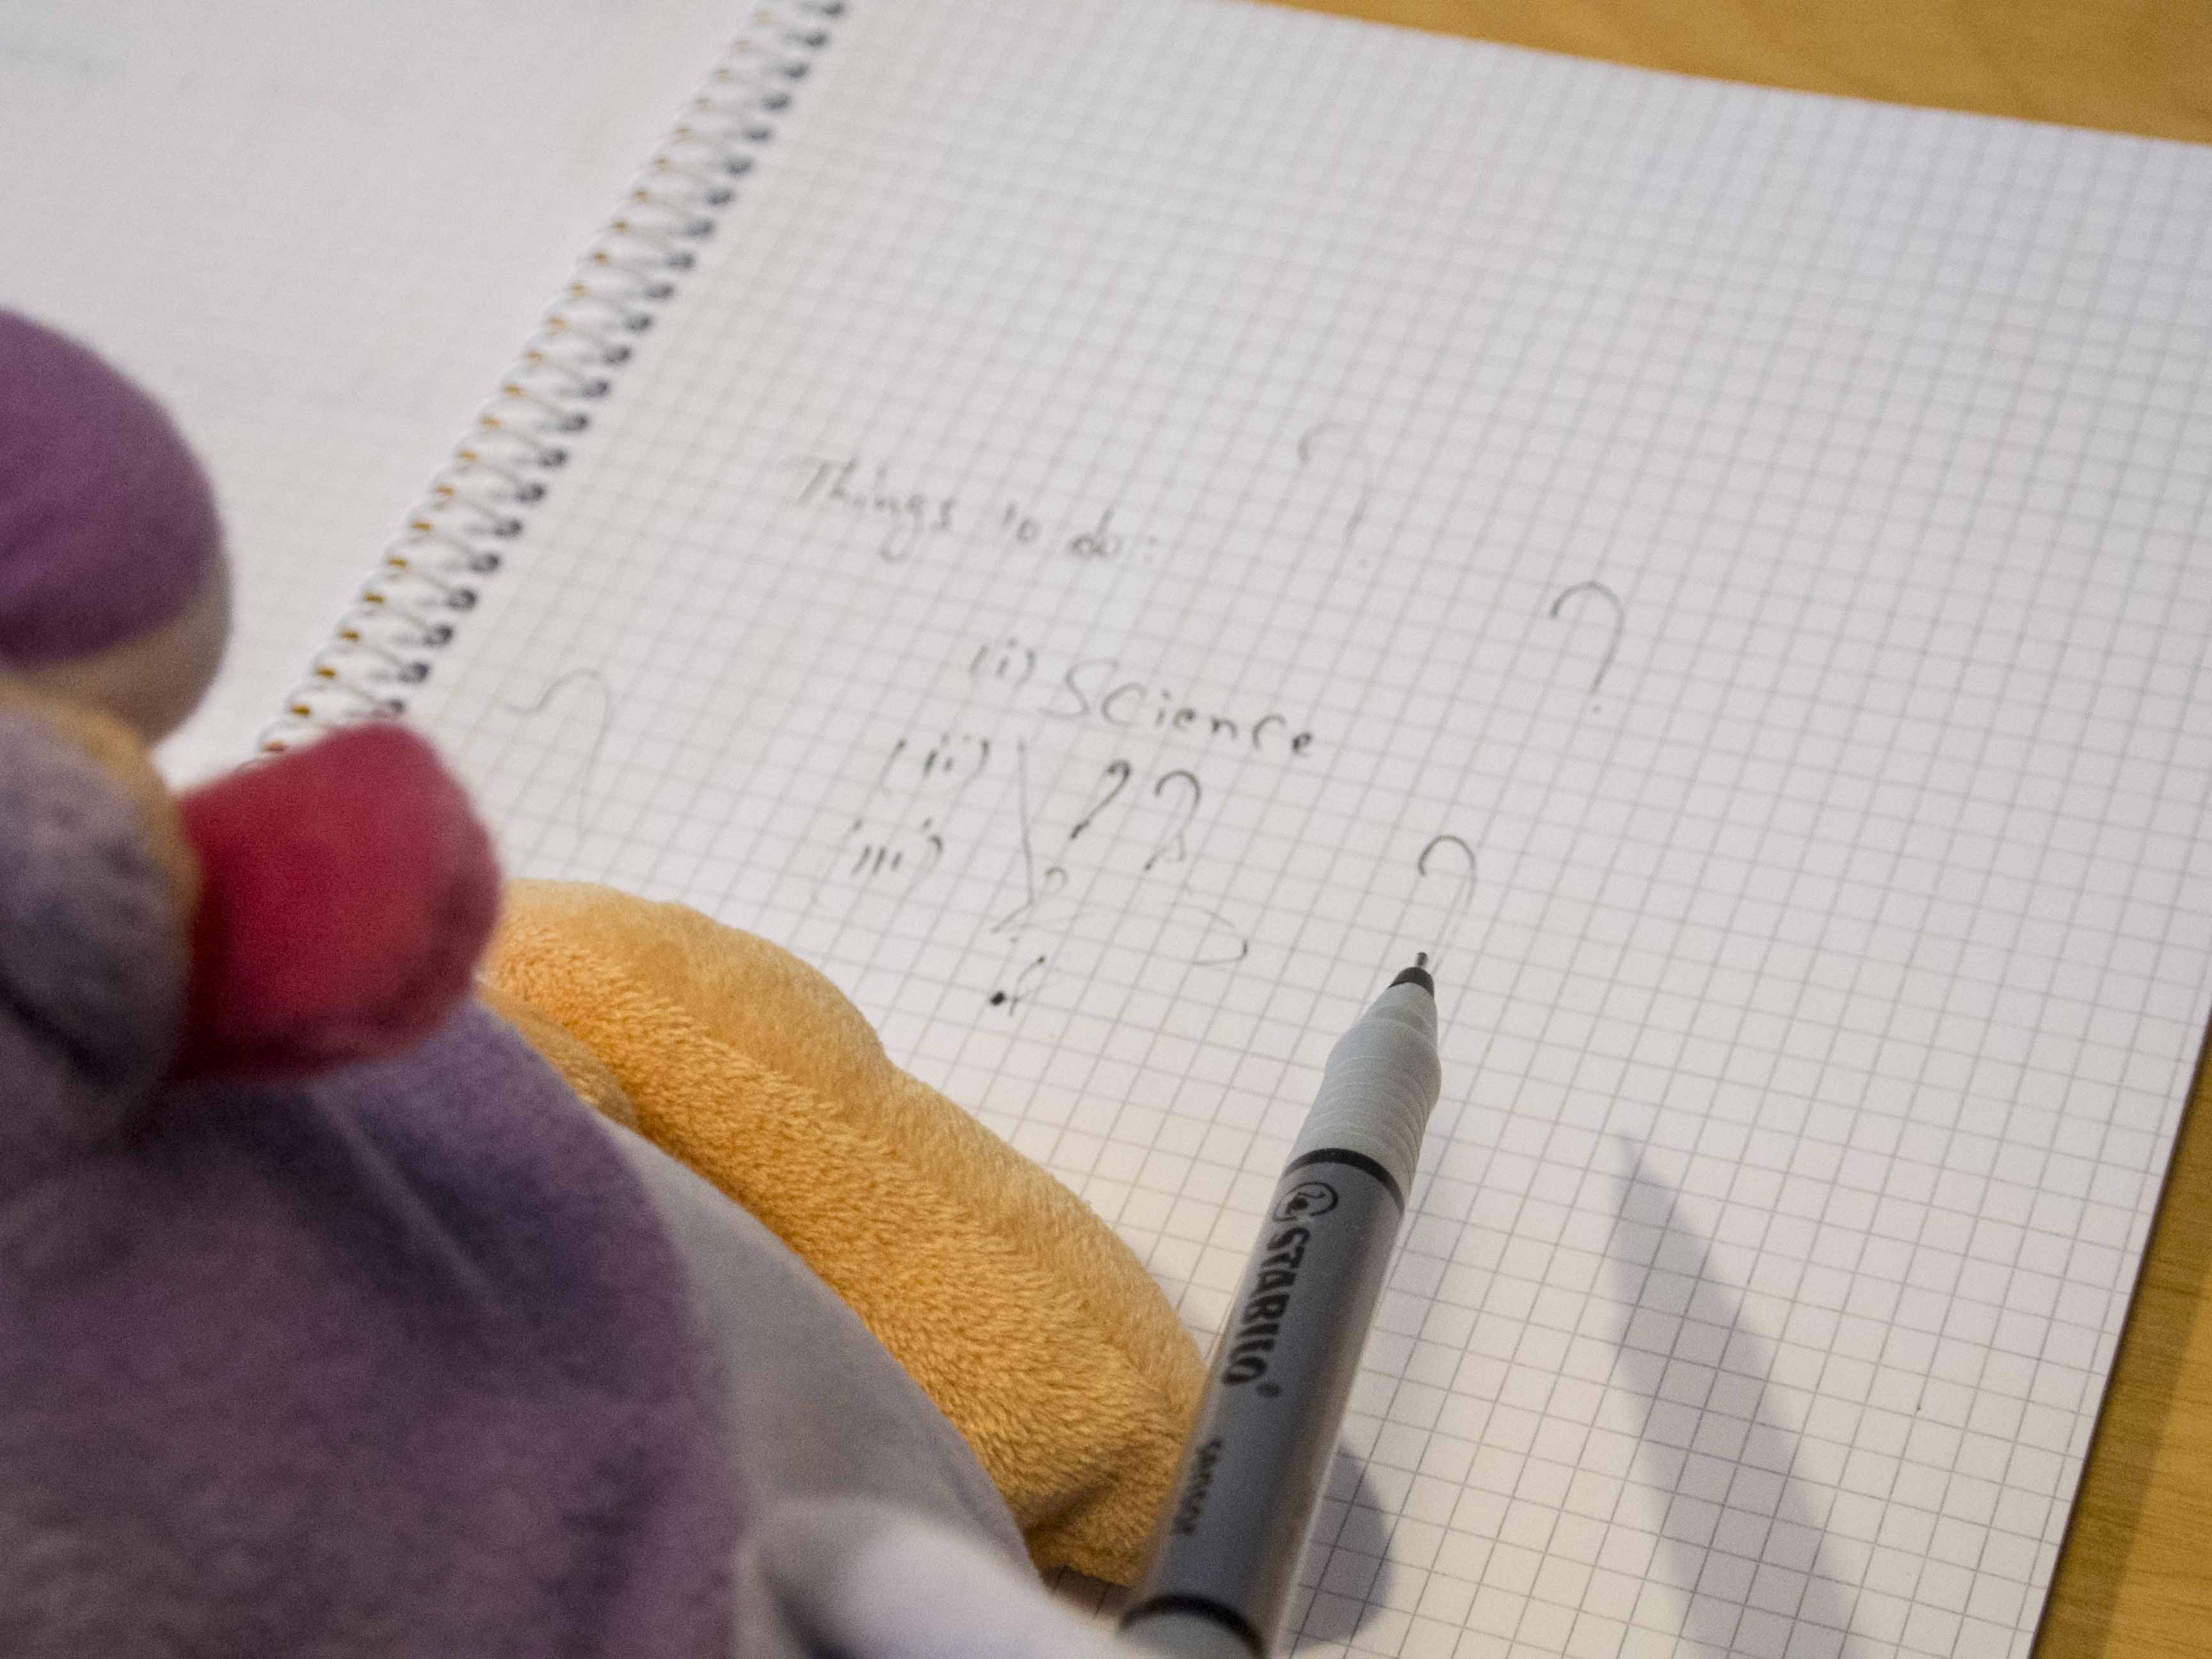 Things to do:
(i) Science
(ii) ??
(iii) ?
?
?
?
?
STABILO®
sensor